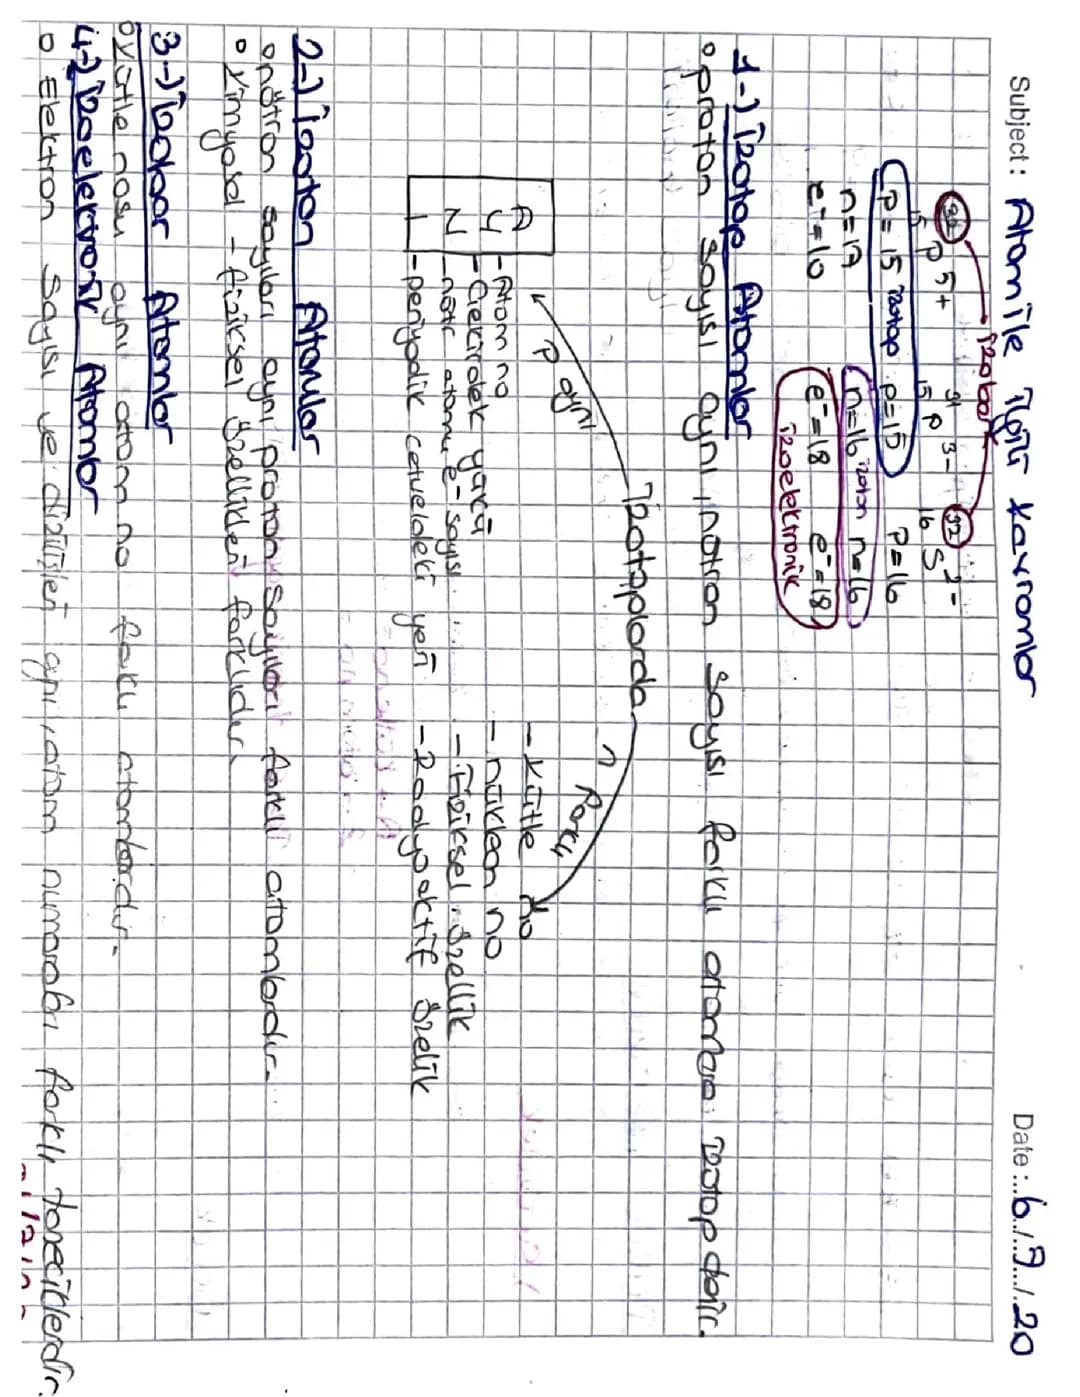 Subject: Atom ile ilgili kavramlar
Date: 6/7/20
izobar
32 15 P 5+
31 15 P 3-
32 16 S 2-
p=15 izotop p=15 p=16
n=17 n=16 izoton n=16
e-=10 e-=18 e-=18
izoelektronik
1-) İzotop Atomlar
proton sayısı aynı nötron sayısı farklı atomlara izotop denir.
İzotoplarda
p aynı
n farklı
A - Atom no
Ç - Çekirdek yükü
N - nötr atomu e- sayısı
- periyodik cetveldeki yeri
- kütle no
- nükleon no
- Fiziksel özellik
- Radyoaktif özellik
2-) İzoton Atomlar
nötron sayıları aynı proton sayıları farklı atomlardır.
Kimyasal - fiziksel özellikleri farklıdır.
3-) İzobar Atomlar
kütle nosu aynı atom no farklı atomlardır.
4-) İzoelektronik Atomlar
Elektron sayısı ve dizilişleri aynı atom numaraları farklı taneciklerdir.